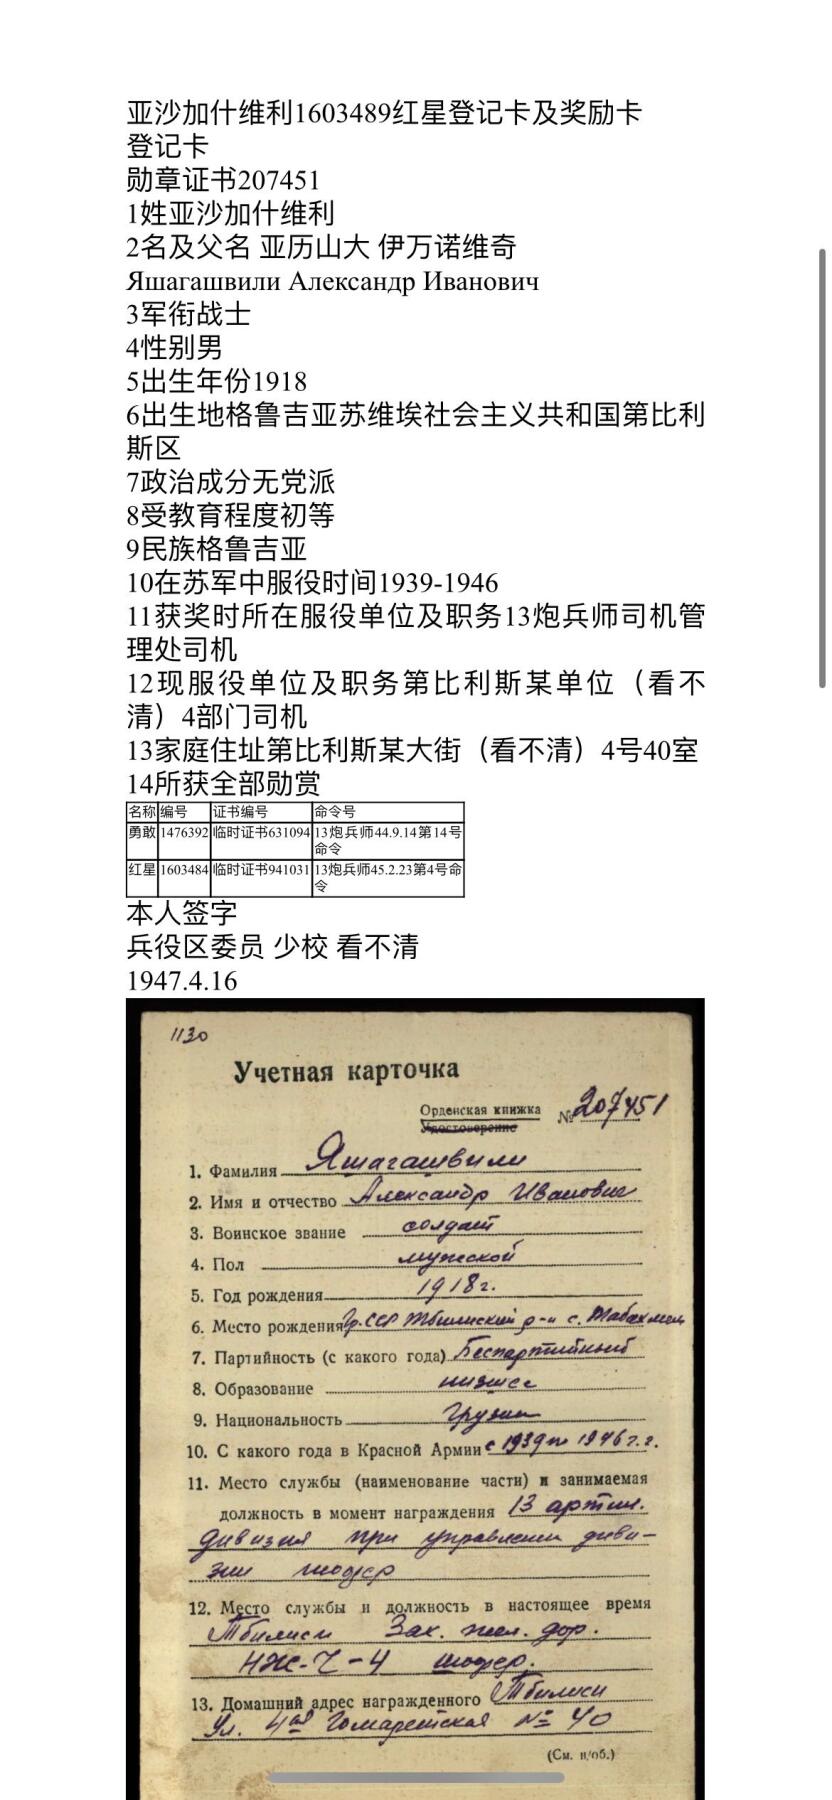 亚沙加什维利1603489红星登记卡及奖励卡
登记卡
勋章证书207451
1姓亚沙加什维利
2名及父名 亚历山大 伊万诺维奇
Яшагашвили Александр Иванович
3军衔战士
4性别男
5出生年份1918
6出生地格鲁吉亚苏维埃社会主义共和国第比利
斯区
7政治成分无党派
8受教育程度初等
9民族格鲁吉亚
10在苏军中服役时间1939-1946
11获奖时所在服役单位及职务13炮兵师司机管
理处司机
12现服役单位及职务第比利斯某单位（看不
清）4部门司机
13家庭住址第比利斯某大街（看不清）4号40室
14所获全部勋赏
名称 编号 证书编号 命令号
勇敢 1476392 临时证书631094 13炮兵师44.9.14第14号
命令
红星 1603484 临时证书941031 13炮兵师45.2.23第4号命
令
本人签字
兵役区委员 少校 看不清
1947.4.16
1130
Учетная карточка
Орденская книжка № 207451
Удостоверение
1. Фамилия Яшагашвили
2. Имя и отчество Александр Иванович
3. Воинское звание солдат
4. Пол мужской
5. Год рождения 1918г.
6. Место рождения Гр.ССР Тбилисский р-н с. Табахмела
7. Партийность (с какого года) Беспартийный
8. Образование низшее
9. Национальность Грузин
10. С какого года в Красной Армии с 1939 по 1946 г.г.
11. Место службы (наименование части) и занимаемая
должность в момент награждения 13 артил.
дивизия при управлении диви-
зии шофер
12. Место службы и должность в настоящее время
Тбилиси Зак. жел. дор.
НЖ-Ч-4 шофер.
13. Домашний адрес награжденного Тбилиси
Ул. 4ая № 40
(См. н/об.)